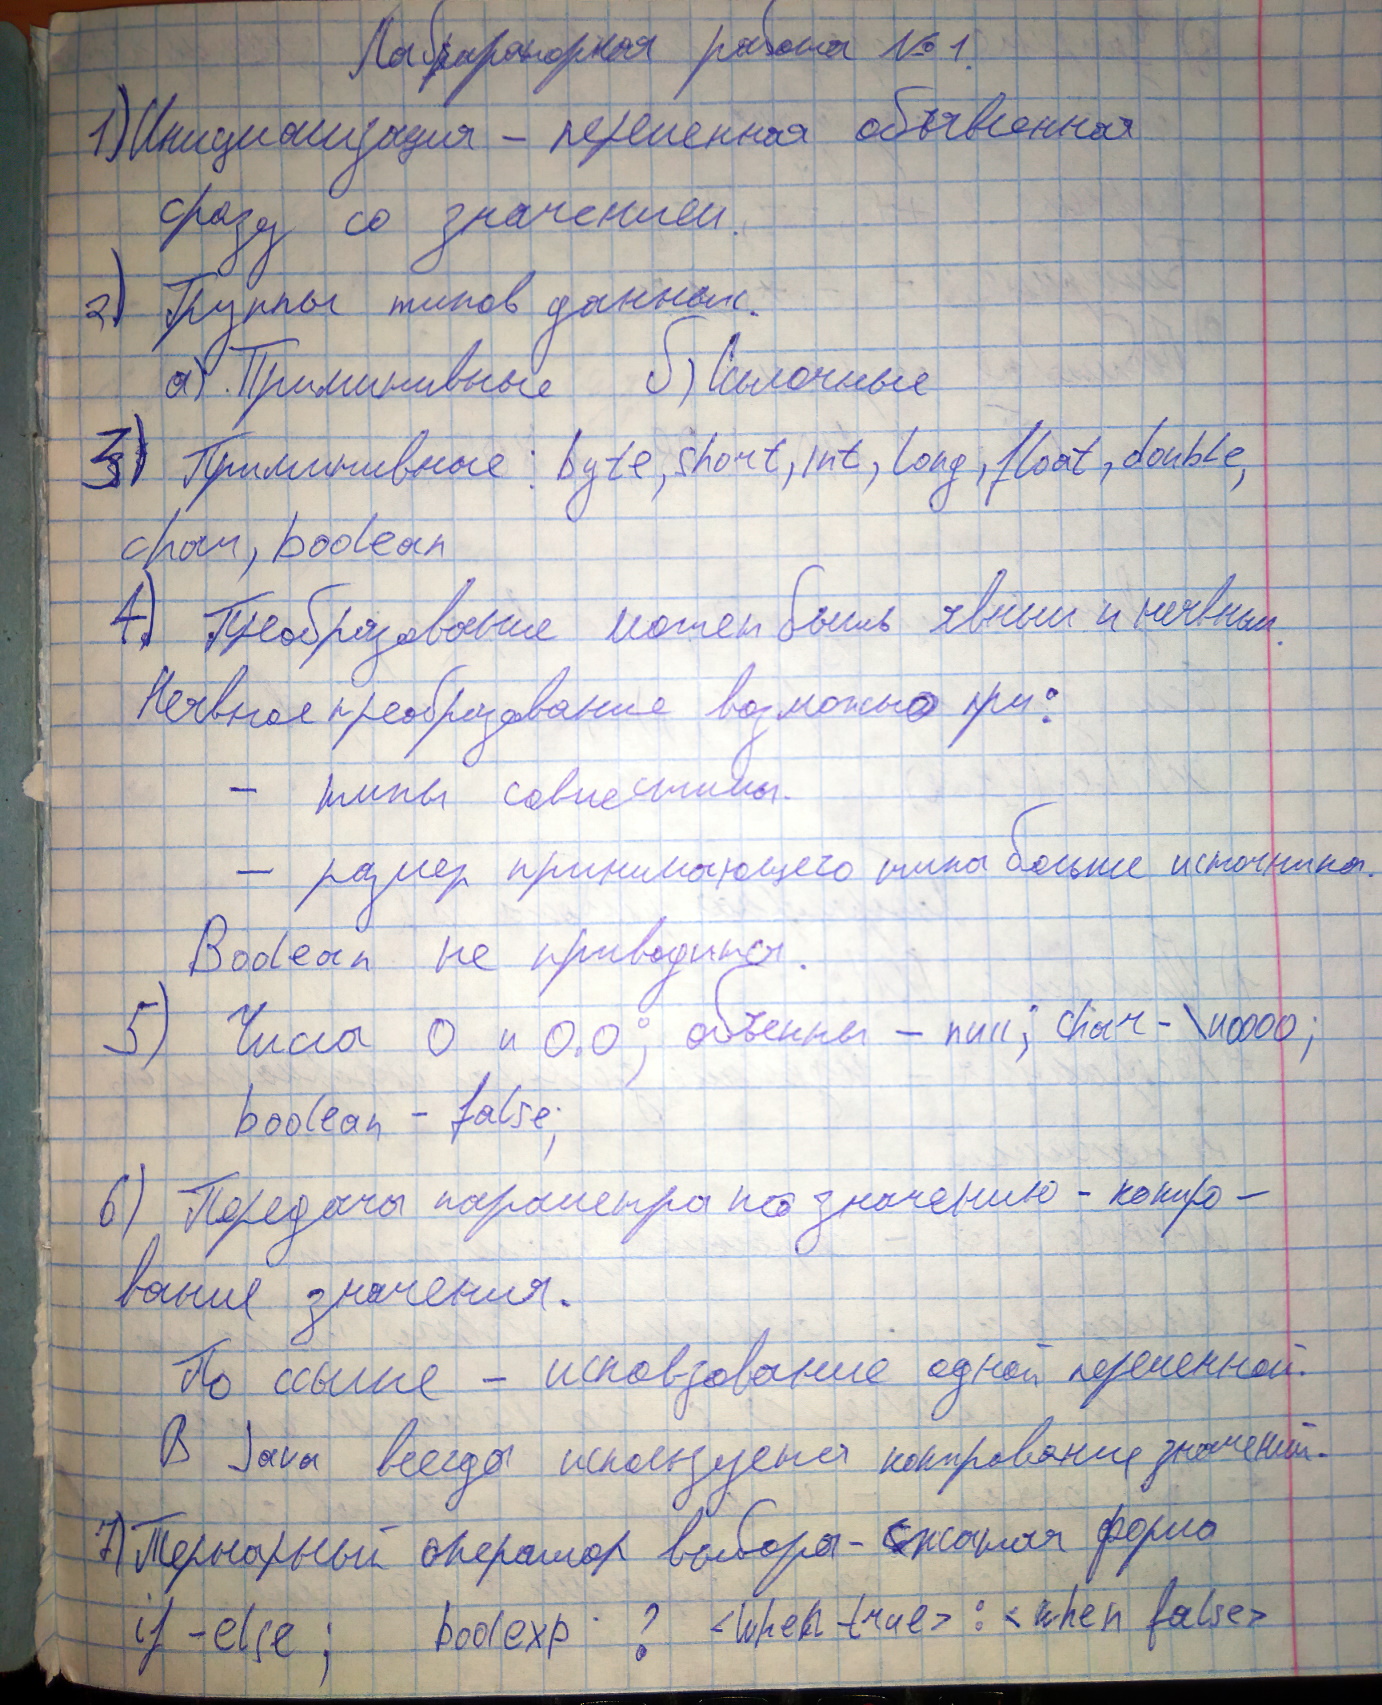 Лабораторная работа №1.
1) Инициализация – переменная объявленная
сразу со значением.
2) Группы типов данных.
а) Примитивные б) Ссылочные
3) Примитивные: byte, short, int, long, float, double,
char, boolean
4) Преобразование может быть явным и неявным.
Неявное преобразование возможно при:
– типы совместимы.
– размер принимающего типа больше источника.
Boolean не приводится.
5) Числа 0 и 0.0; объекты – null; char - \u0000;
boolean – false;
6) Передача параметра по значению – копиро –
вание значения.
По ссылке – использование одной переменной.
В Java всегда используется копирование значений.
7) Тернарный оператор выбора – сжатая форма
if -else; boolexp ? <when true> : <when false>